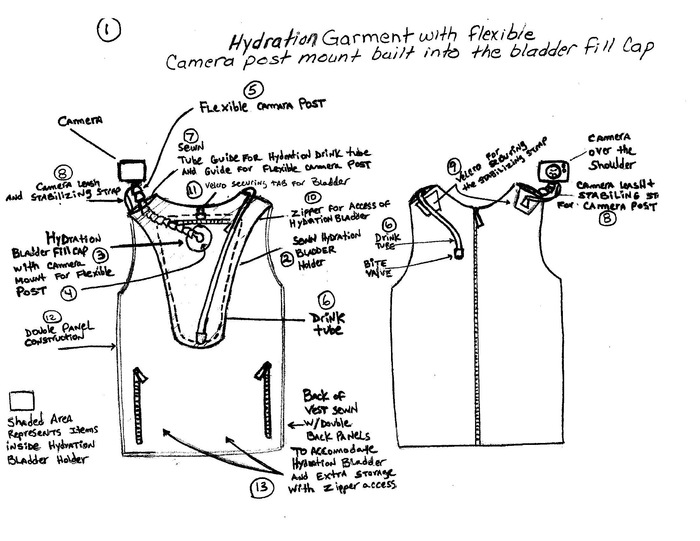 ①
Hydration Garment with flexible
Camera post mount built into the bladder fill Cap
⑤
Flexible camara Post
Camera
⑦
Sewn
Tube Guide for Hydration Drink tube
and Guide for Flexible camera Post
⑧
Camera Leash
and Stabilizing Strap
⑪
Velcro securing tab for Bladder
⑩
Zipper for Access of
Hydration Bladder
Hydration
Bladder Fill Cap ③
with camera
Mount for Flexible
Post ④
Sewn Hydration
② Bladder
Holder
⑥
Drink
tube
⑫
Double Panel
Construction
Shaded Area
Represents Items
inside Hydration
Bladder Holder
Back of
Vest sewn
w/Double
Back Panels
To Accomodate
Hydration Bladder
and Extra Storage
with Zipper access
⑬
⑨
Velcro for
securing
the stabilizing strap
Camera
over the
Shoulder
Camera Leash +
Stabiling St
for Camera Post
⑧
⑥
Drink
Tube
Bite
Valve